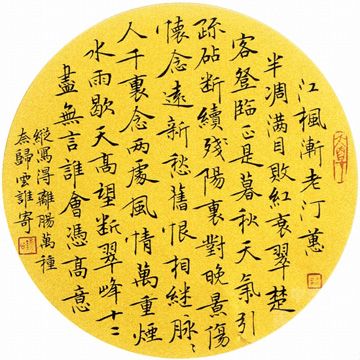 江楓漸老汀蕙
半凋滿目敗紅衰翠楚
客登臨正是暮秋天氣引
疏砧斷續殘陽裏對晚景傷
懷念遠新愁舊恨相繼脉〻
人千裏念兩處風情萬重煙
水雨歇天高望斷翠峰十二
盡無言誰會憑高意
縱寫得離腸萬種
奈歸雲誰寄